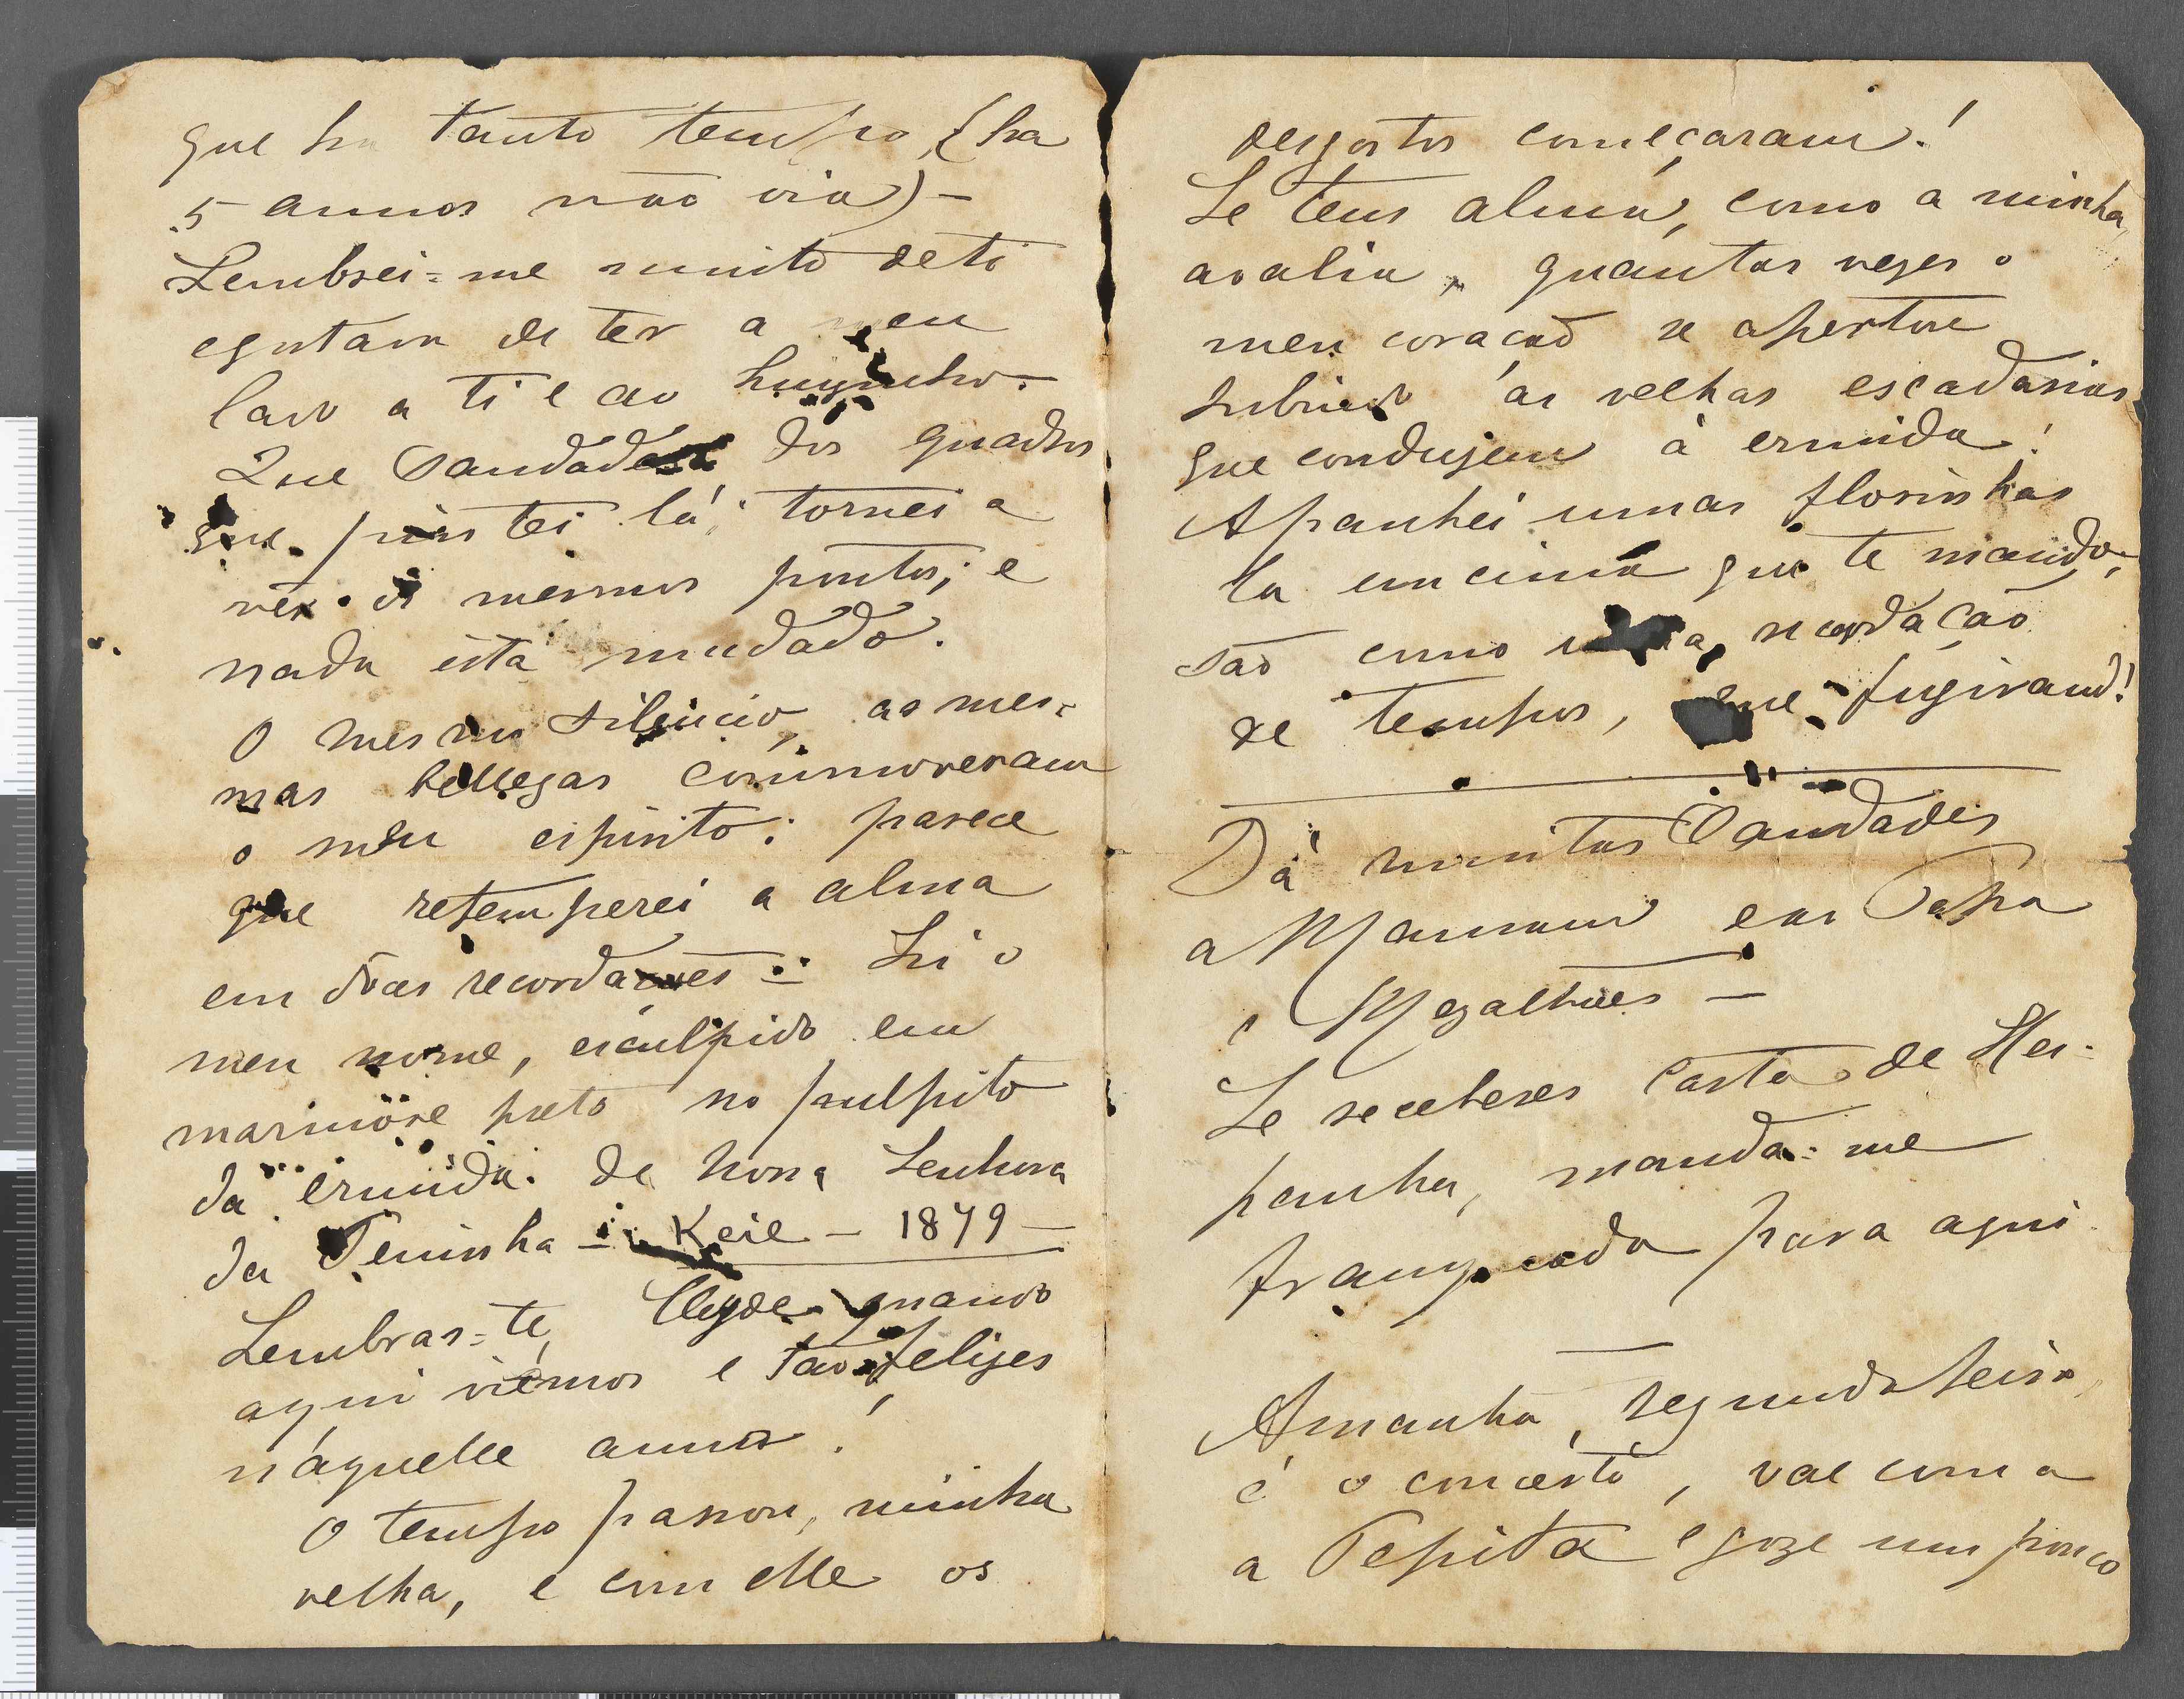 que ha tanto tempo, (ha
5 annos não via) -
Lembrei=me muito de ti
e gostava de ter a meu
lado a ti e ao
Que Saudades dos quadros
que pintei lá; tornei a
ver os mesmos pontos; e
nada está mudado.
O mesmo silencio, as mes-
mas bellezas commoveram
o meu espirito; parece
que retemperei a alma
em doces recordações - Li o
meu nome, esculpido em
marmore preto no pulpito
da ermida de nossa Senhora
da Peninha - Keil - 1879 -
Lembras=te, Cleyde quando
aqui viémos e tão felizes
n'aquelle anno!
O tempo passou, minha
velha, e com elle os
desgostos começaram!
Se tens alma, como a minha,
avalia, quantas vezes o
meu coração se apertou
subindo ás velhas escadarias
que conduzem á ermida!
Apanhei umas florinhas
la em cima que te mando,
são como uma recordação
de tempos, que fugiram!
Dá muitas Saudades
a Maman e ao Papa
e Magalhães -
Se receberes carta de Hes-
panha, manda=me
franqueada para aqui
Amanhã, segunda feira,
é o concerto, vae com a
a Pepita e goze um pouco